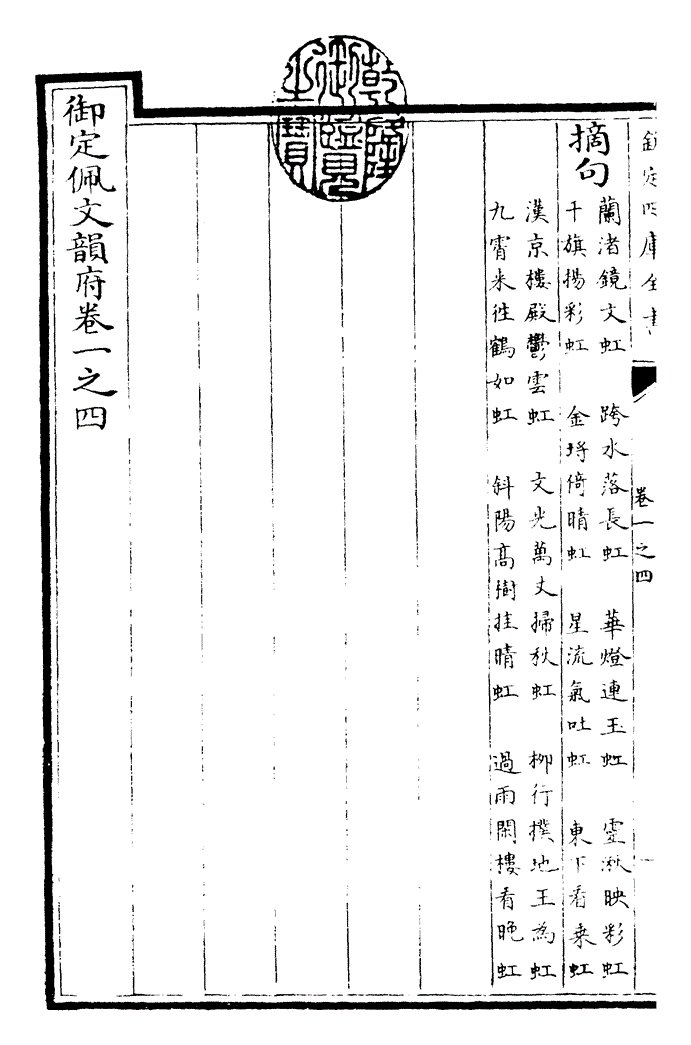 欽定四庫全書
卷一之四
摘句
蘭渚鏡文虹　跨水落長虹　華燈連玉虹　靈湫映彩虹
千旗揚彩虹　金埒倚晴虹　星流氣吐虹　東下看乗虹
漢京樓殿鬱雲虹　文光萬丈掃秋虹　柳行撲地玉為虹
九霄來徃鶴如虹　斜陽高樹挂晴虹　過雨閑樓看晚虹
御定佩文韻府卷一之四
乾隆御覽之寶